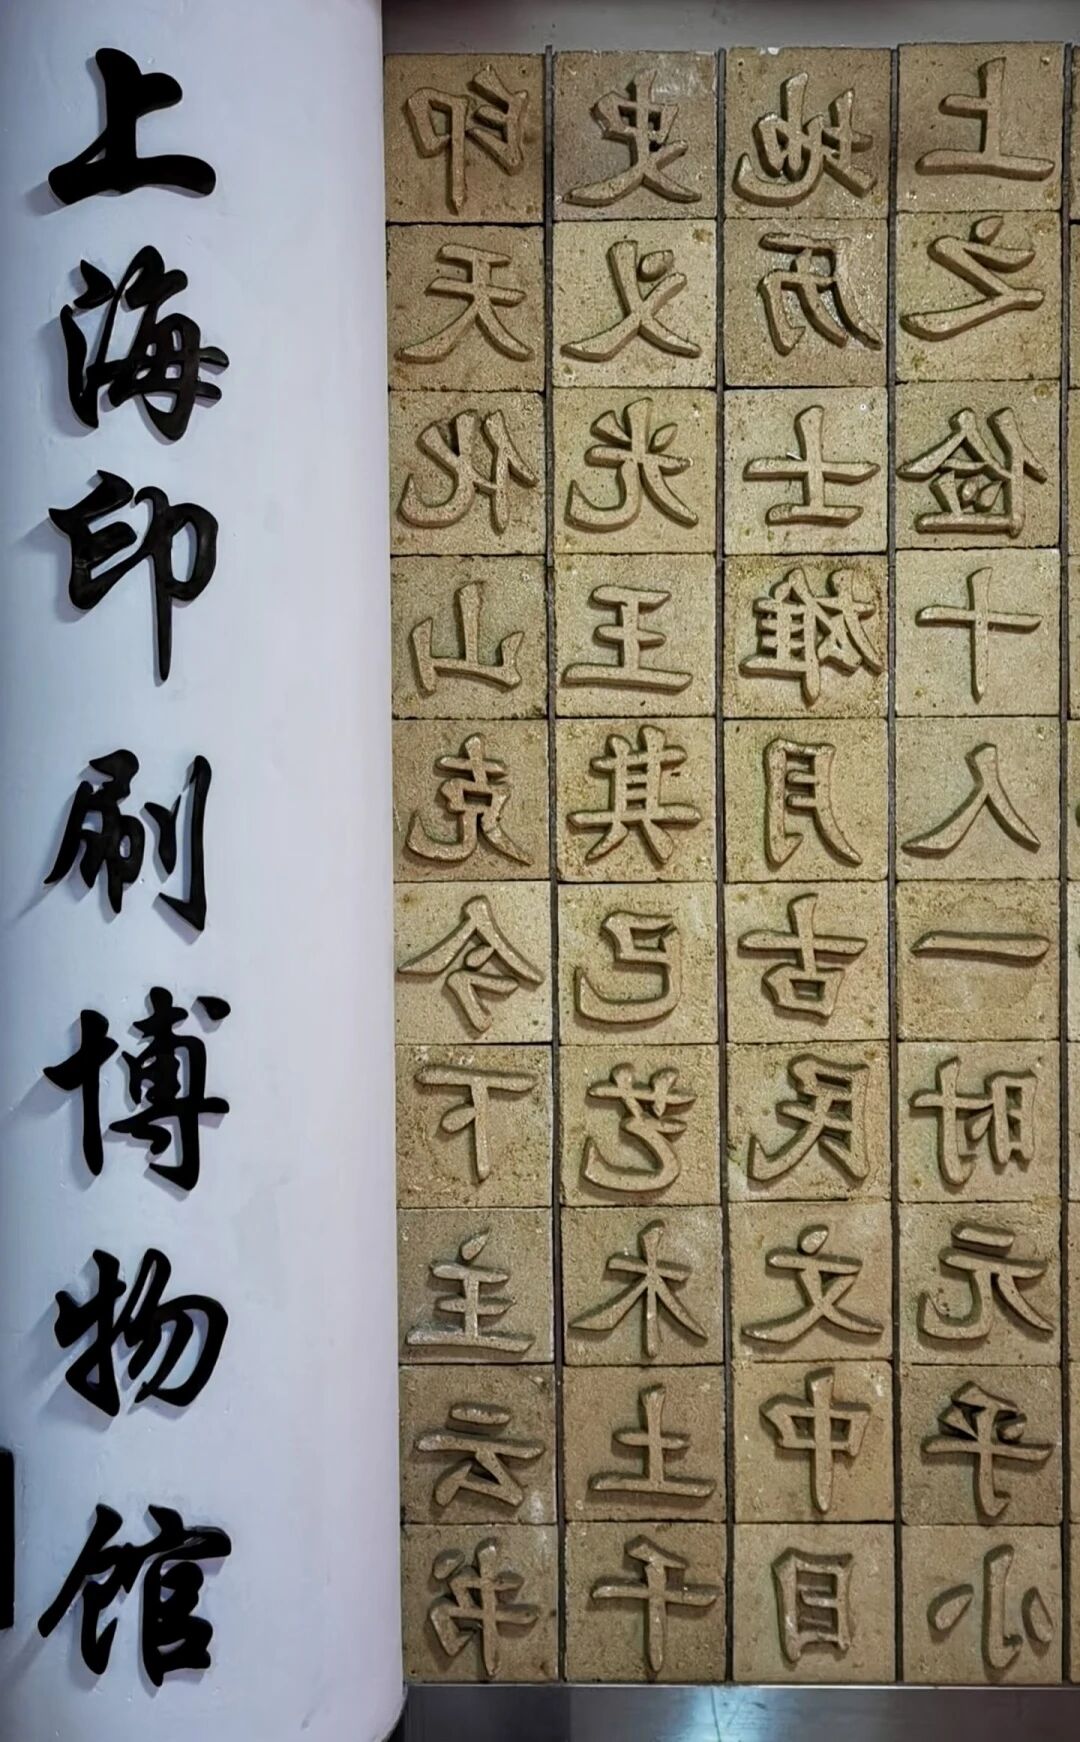 上海印刷博物馆
印天化山克今下主云书
史义光王其己艺木土千
地历士雄月古民文中目
上之俭十人一时元乎小